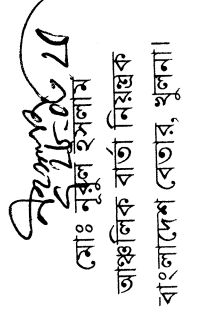 মোঃ নূরুল ইসলাম
আঞ্চলিক বার্তা নিয়ন্ত্রক
বাংলাদেশ বেতার, খুলনা।